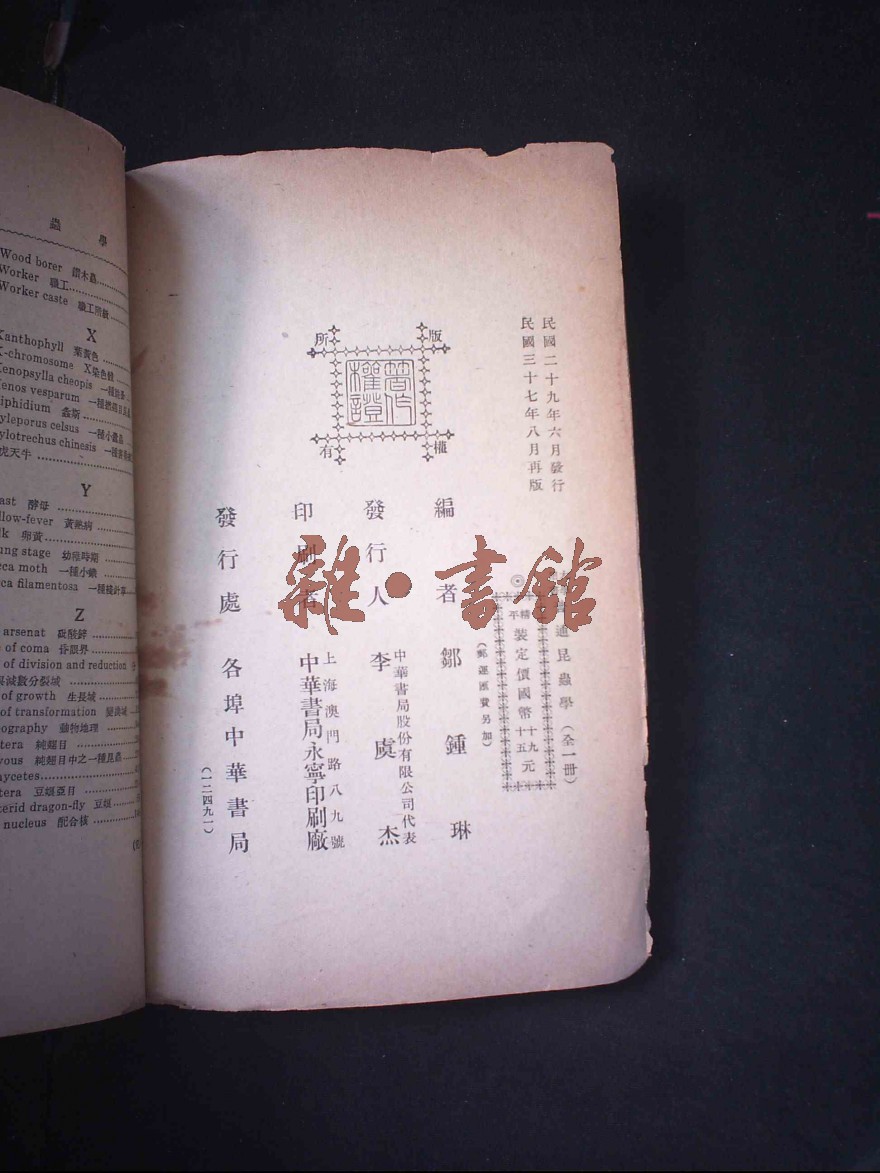 蟲 學
Wood borer 鑽木蟲
Worker 職工
Worker caste 職工階級
X
Xanthophyll 葉黃色
X-chromosome X染色體
Xenopsylla cheopis 一種
Xenos vesparum 一種
iphidium 螽斯
yleporus celsus 一種小蠹蟲
ylotrechus chinesis 一種
虎天牛
Y
ast 酵母
llow-fever 黃熱病
lk 卵黃
ung stage 幼稚時期
cca moth 一種小蛾
cca filamentosa 一種
Z
arsenat 砒酸鋅
of coma 昏眼界
of division and reduction
減數分裂域
of growth 生長域
of transformation 變
eography 動物地理
tera 純翅目
vous 純翅目中之一種昆蟲
mycetes
tera 豆娘亞目
terid dragon-fly 豆娘
nucleus 配合核
民國二十九年六月發行
民國三十七年八月再版
普通昆蟲學(全一冊)
精平裝定價國幣十九元十五
(郵運匯費另加)
版權所有
著作權證
編者 鄒鍾琳
發行人 李虞杰
中華書局股份有限公司代表
印刷者 上海澳門路八九號
中華書局永寧印刷廠
發行處 各埠中華書局
(一二四九一)
雜·書館